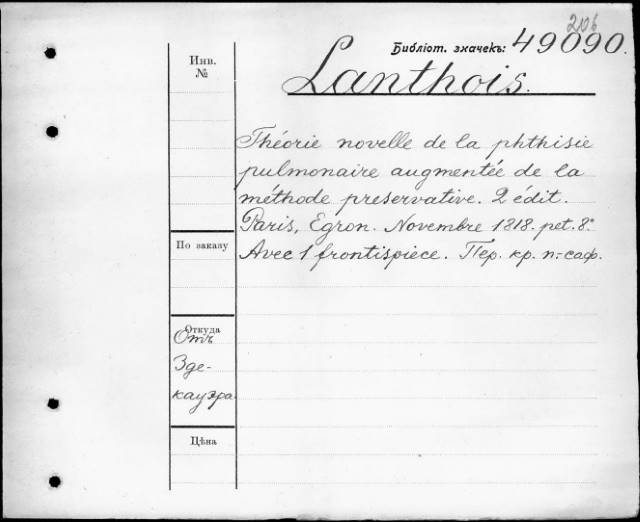 206
Библіот. значекъ: 49090.
Lanthois.
Инв.
№
Théorie novelle de la phthisie
pulmonaire augmentée de la
méthode preservative. 2 édit.
Paris, Egron. Novembre 1818. pet. 8°
Avec 1 frontispiece. Пер. кр. п.-саф.
По заказу
Откуда
Отъ
Зде-
кауэра
Цѣна